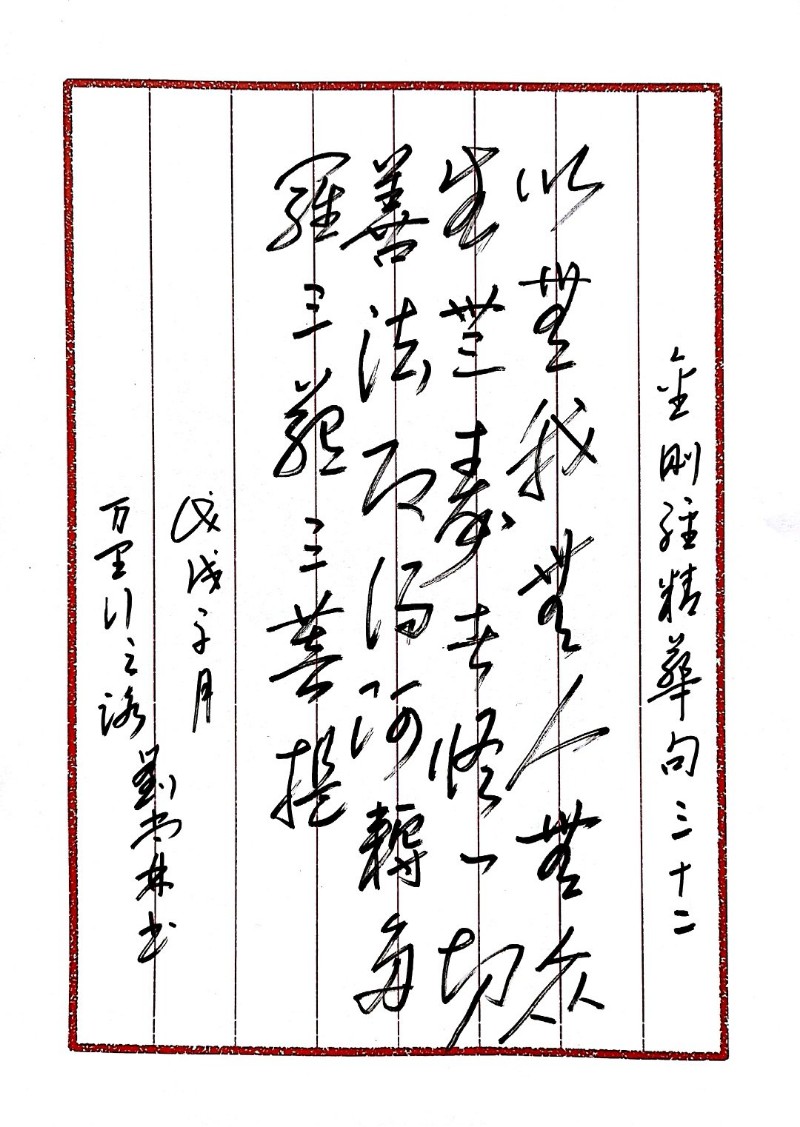 金刚经精华句三十二
以無我無人無众
生無寿者修一切
善法即得阿耨多
羅三藐三菩提
戊戌子月
万里行之路 劉尚林书